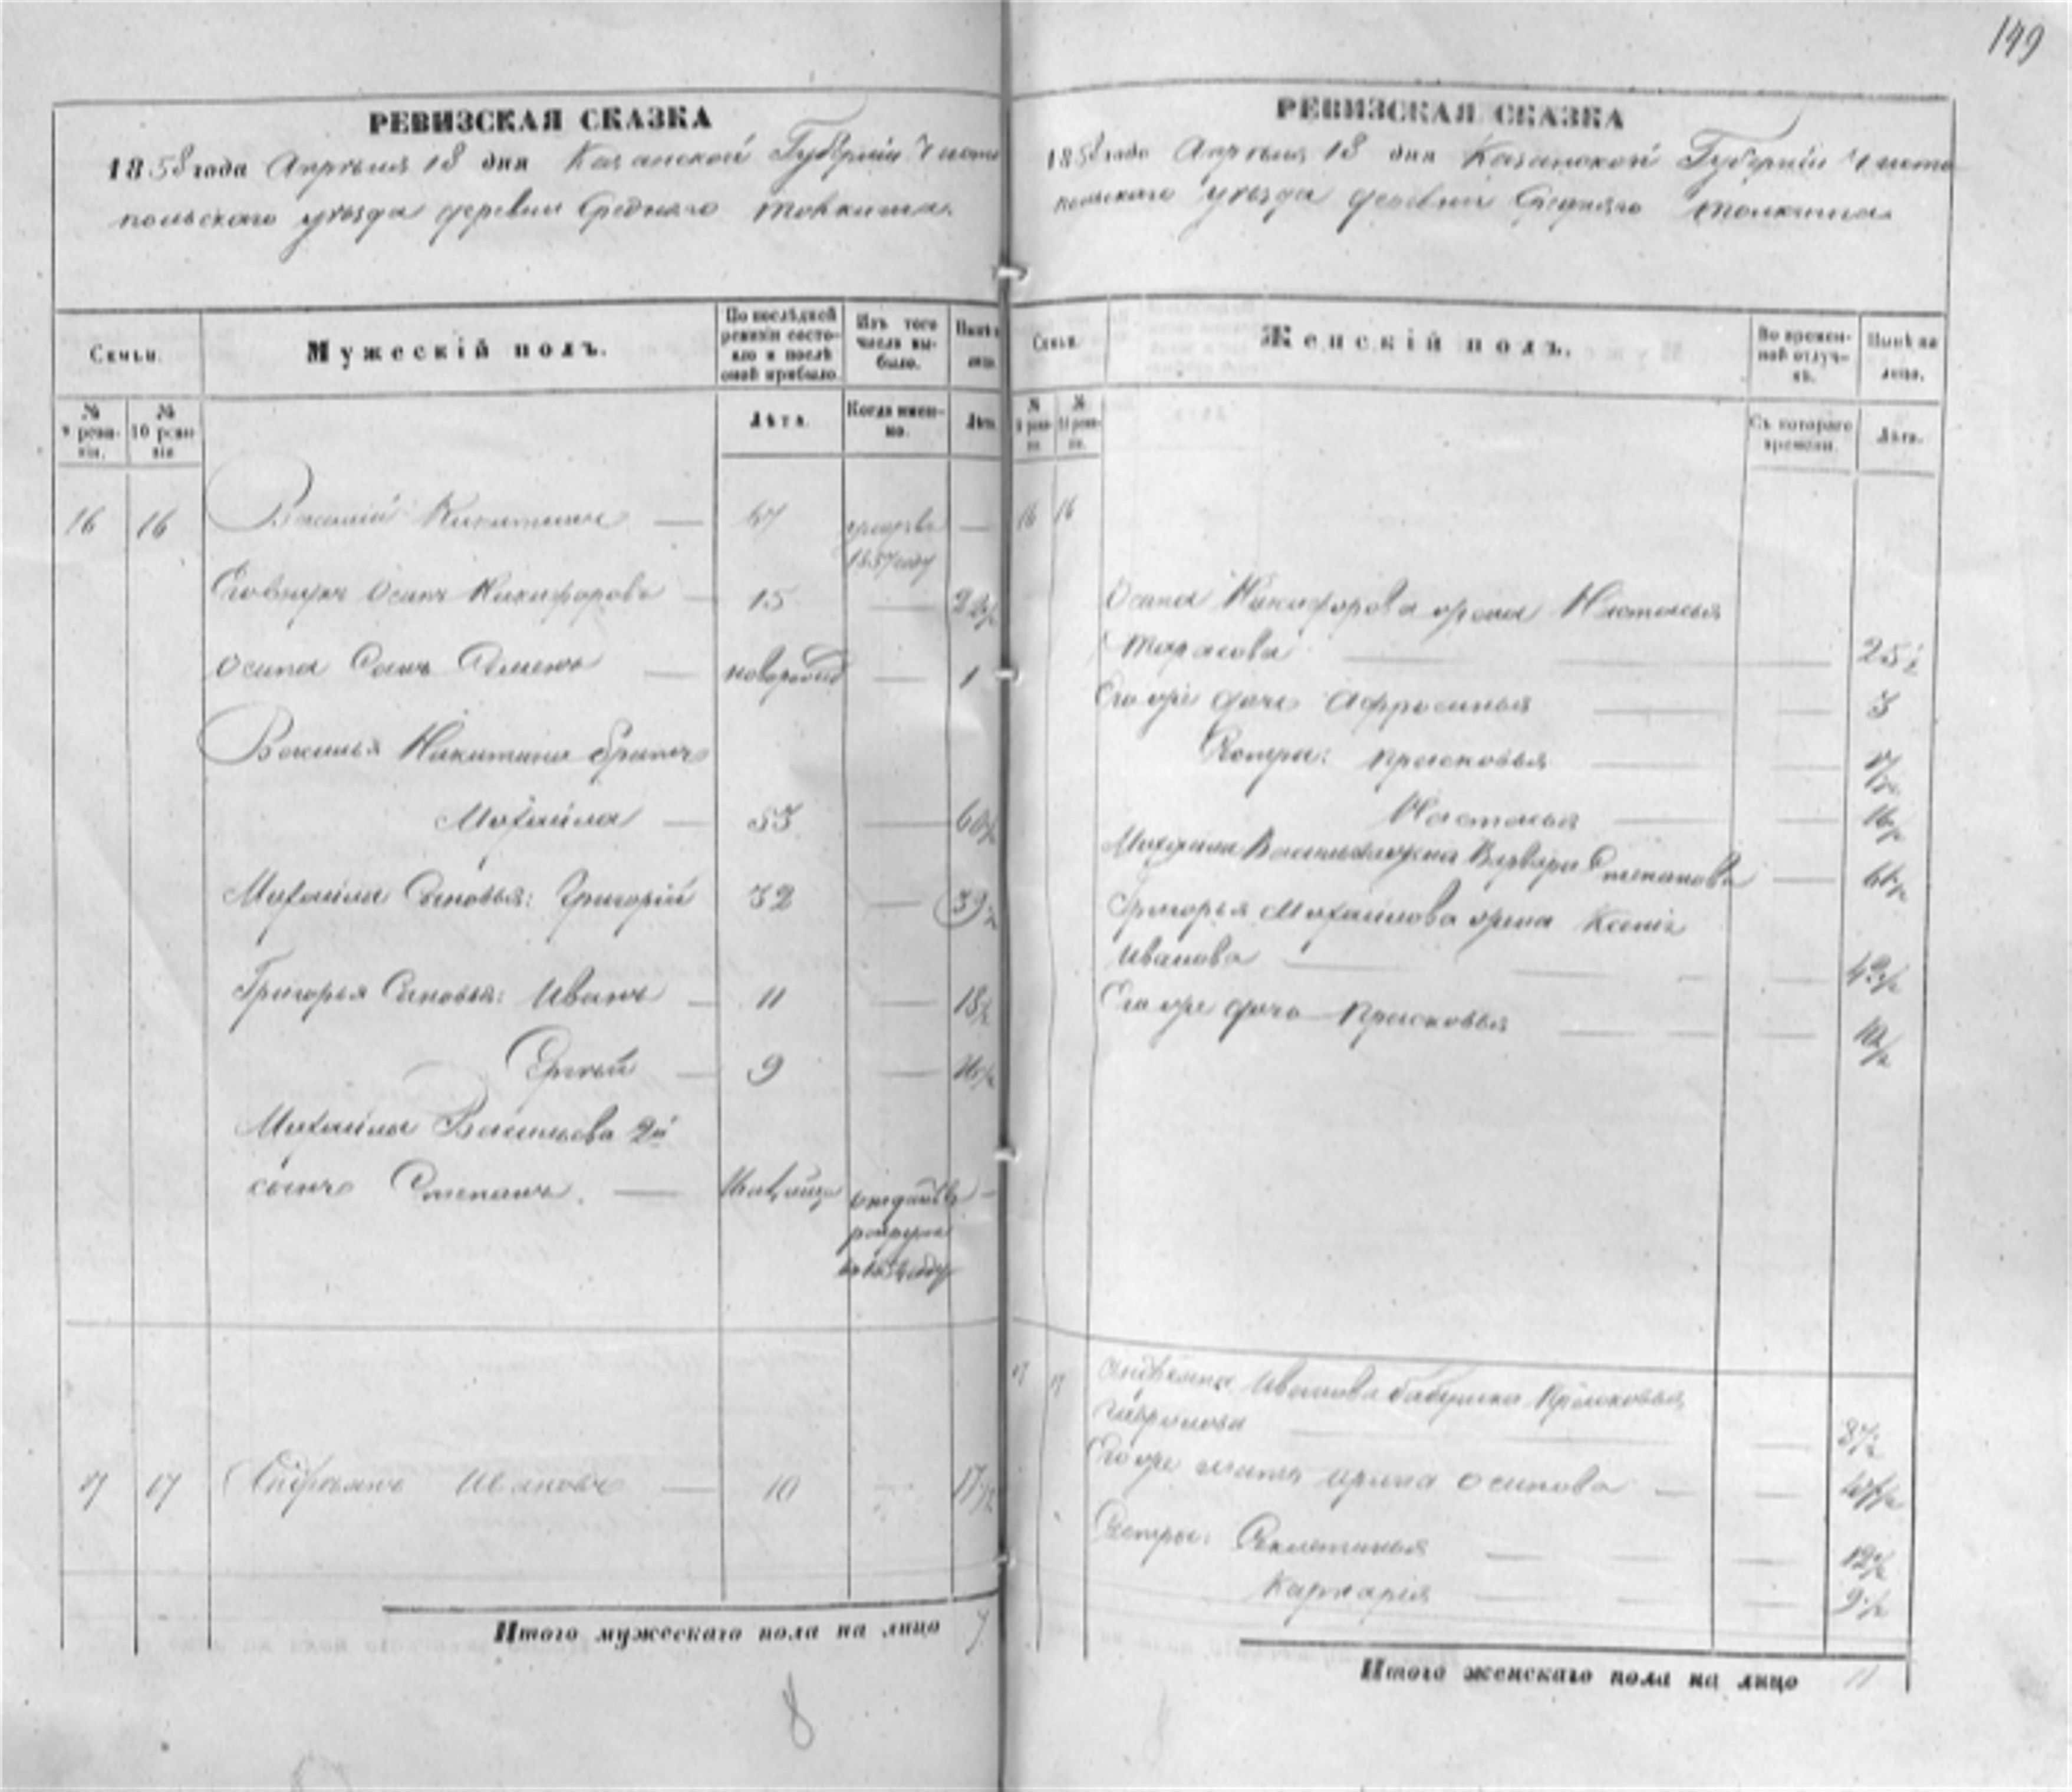 149
РЕВИЗСКАЯ СКАЗКА
1858 года Апреля 18 дня Казанской Губерніи Чисто
польскаго уезда деревни Средняго Толкиша
Семьи.
Мужескій полъ.
По послѣдней ревизіи состояло и послѣ оной прибыло.
Изъ того числа выбыло.
Нынѣ на лицо.
№ 9 ревизіи.
№ 10 ревизіи
Лѣта.
Когда именно.
Лѣта.
16 16 Василій Никитинъ — 67 умръ въ —
1857 году
Его внукъ Осипъ Никифоровъ — 15 — 22½
Осипа Сынъ Семенъ — новорожд — 1
Василья Никитина братъ
Михайла — 53 — 60½
Михайлы Сыновья: Григорій 32 — 39½
Григорья Сыновья: Иванъ — 11 — 18½
Сергей — 9 — 16½
Михайлы Васильева 2й
сынъ Степанъ. — отданъ въ —
рекруты
17 17 Ивановъ — 10 — 17½
Итого мужескаго пола на лицо 7
8
РЕВИЗСКАЯ СКАЗКА
1858 года Апреля 18 дня Казанской Губерніи Чисто
польскаго уезда деревни Средняго Толкиша
Семьи.
Женскій полъ.
Во временной отлучкѣ.
Нынѣ на лицо.
№ 9 ревизіи.
№ 10 ревизіи.
Съ котораго времени.
Лѣта.
16 16
Осипа Никифорова жена Настасья
Тарасова — 25½
Его же дочь Афросинья — 3
Сестры: Прасковья — 17½
Настасья — 16½
Михайлы Васильева жена Варвара Степанова —
Григорья Михайлова жена Ксенія
Иванова — 42½
Его же дочь Прасковья — 10½
17 17 Иванова бабушка Прасковья
Гаврилова —
Его же мать Ирина Осипова —
Сестры: Секлетинья — 12½
— 9½
Итого женскаго пола на лицо 11